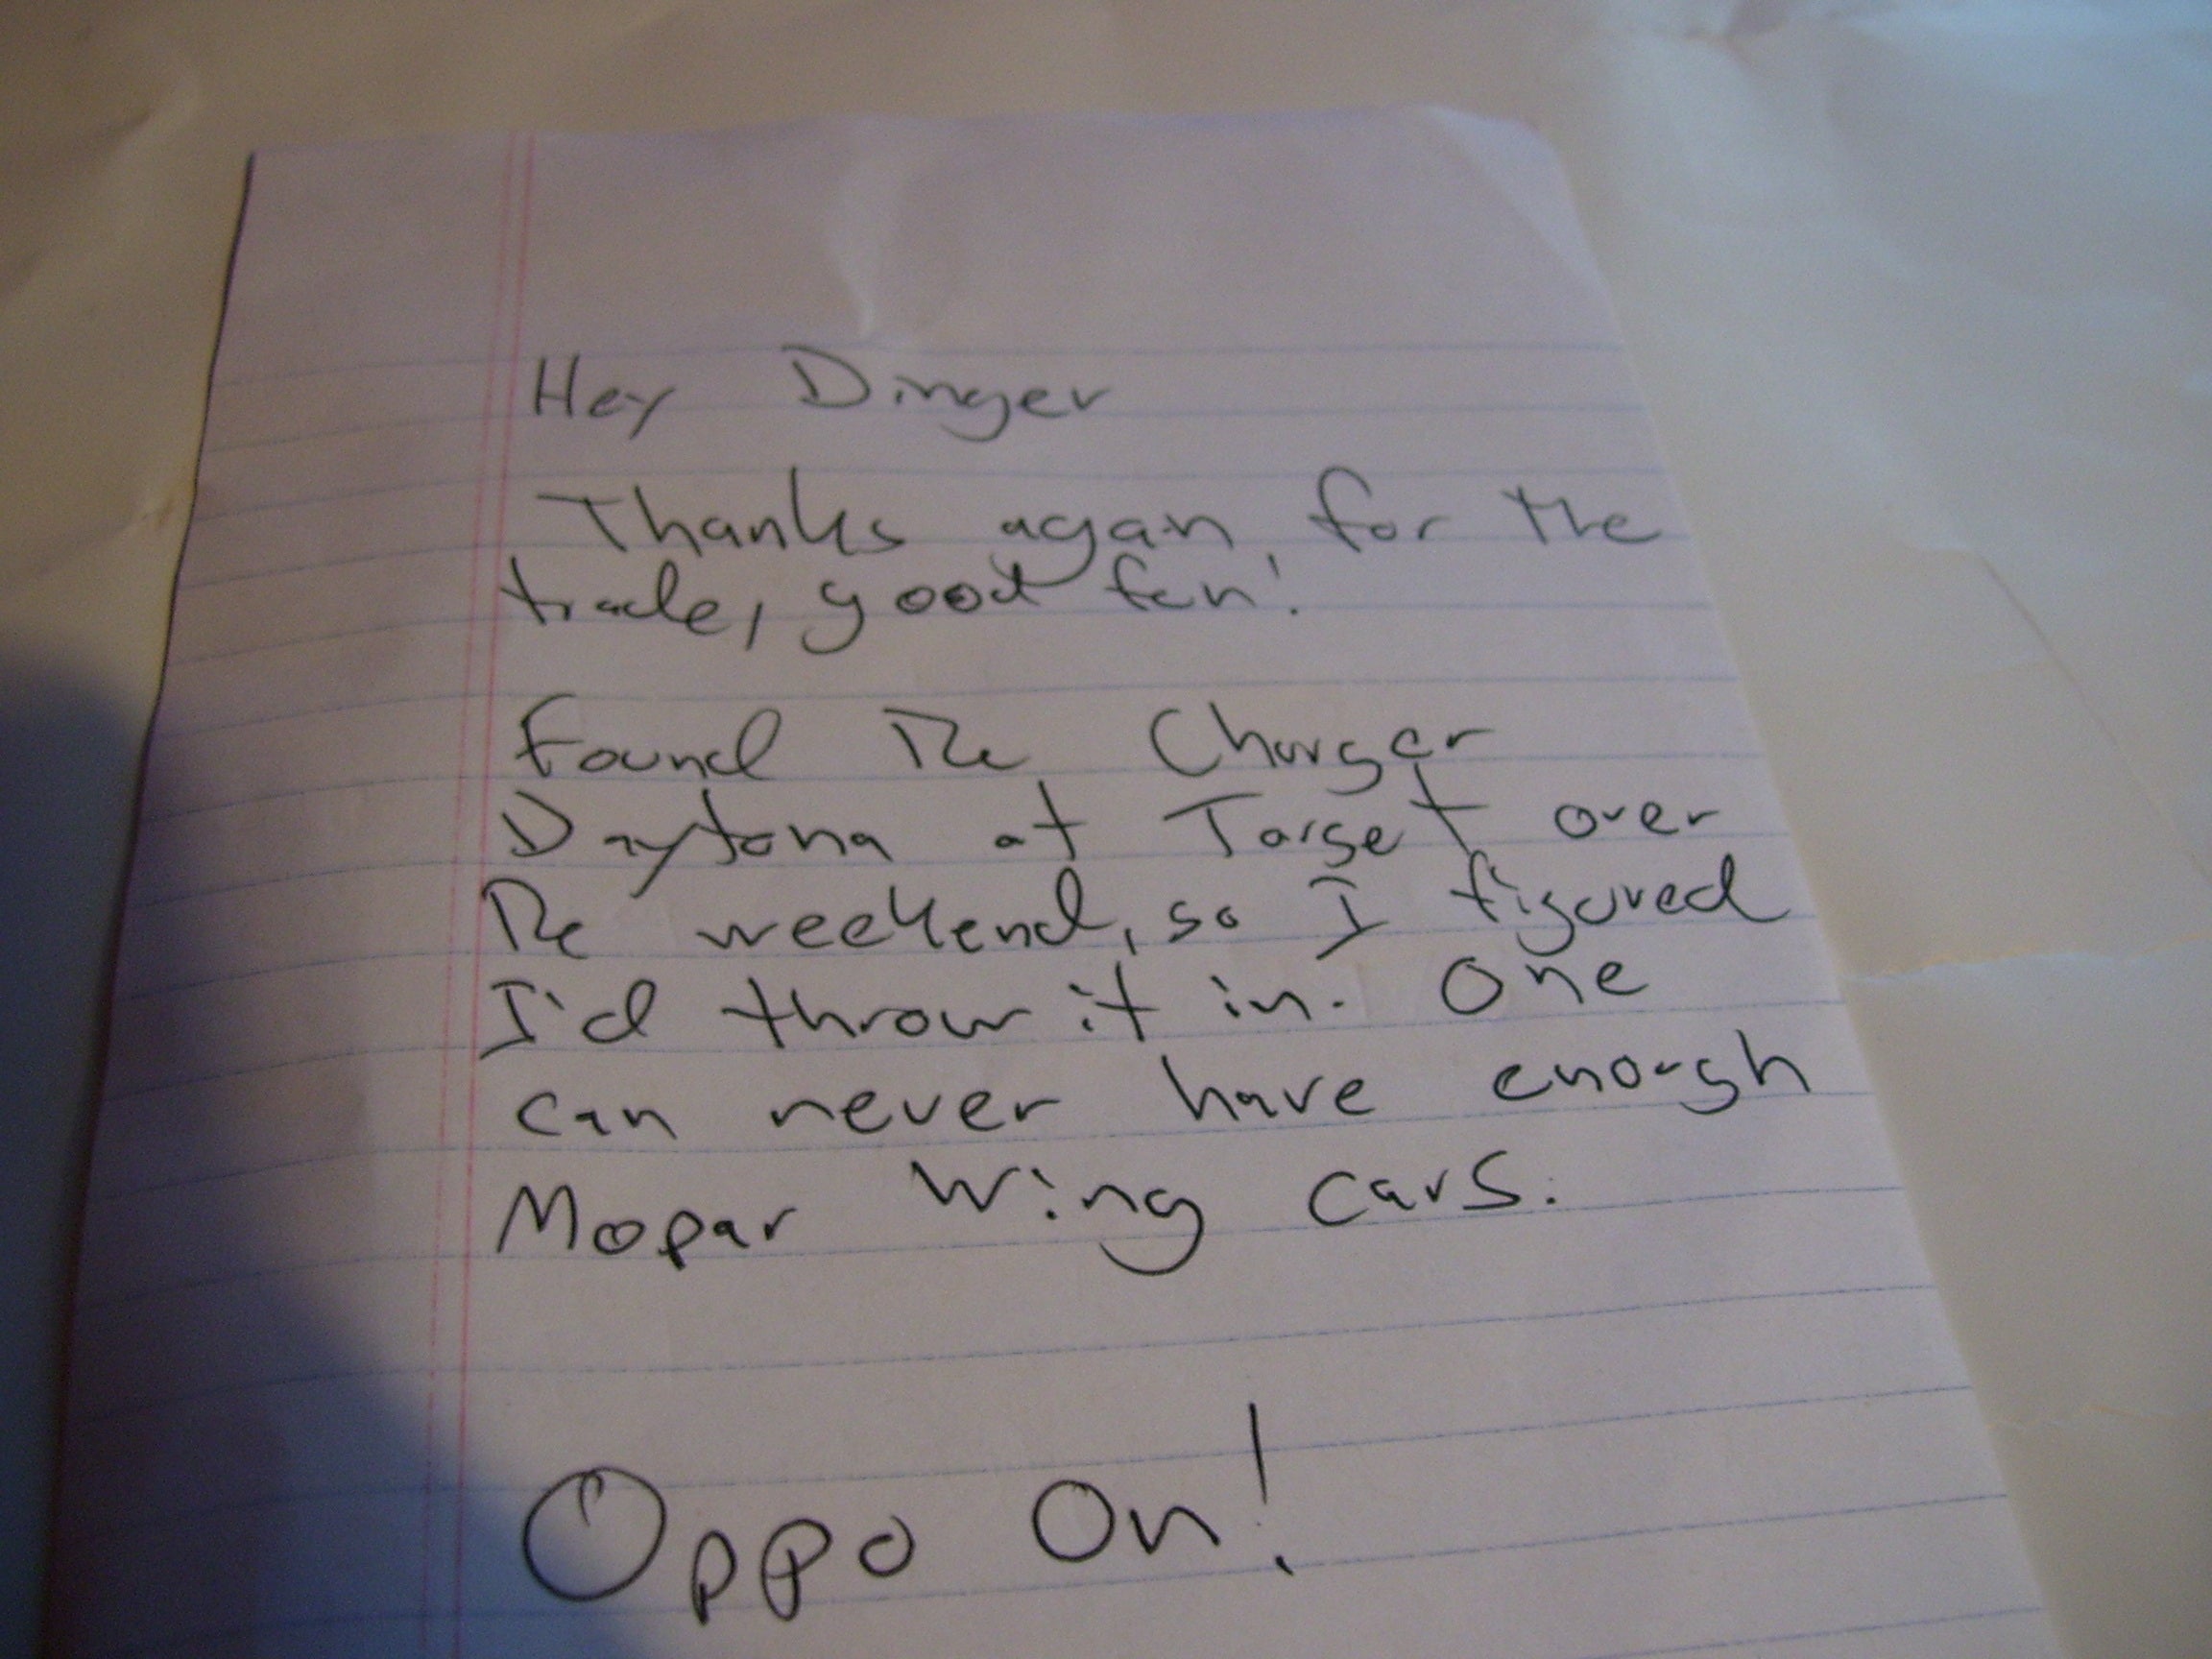 Hey Dinger
Thanks again for the
trade, good fun!
Found The Charger
Daytona at Target over
The weekend, so I figured
I'd throw it in. One
can never have enough
Mopar Wing cars.
Oppo On!